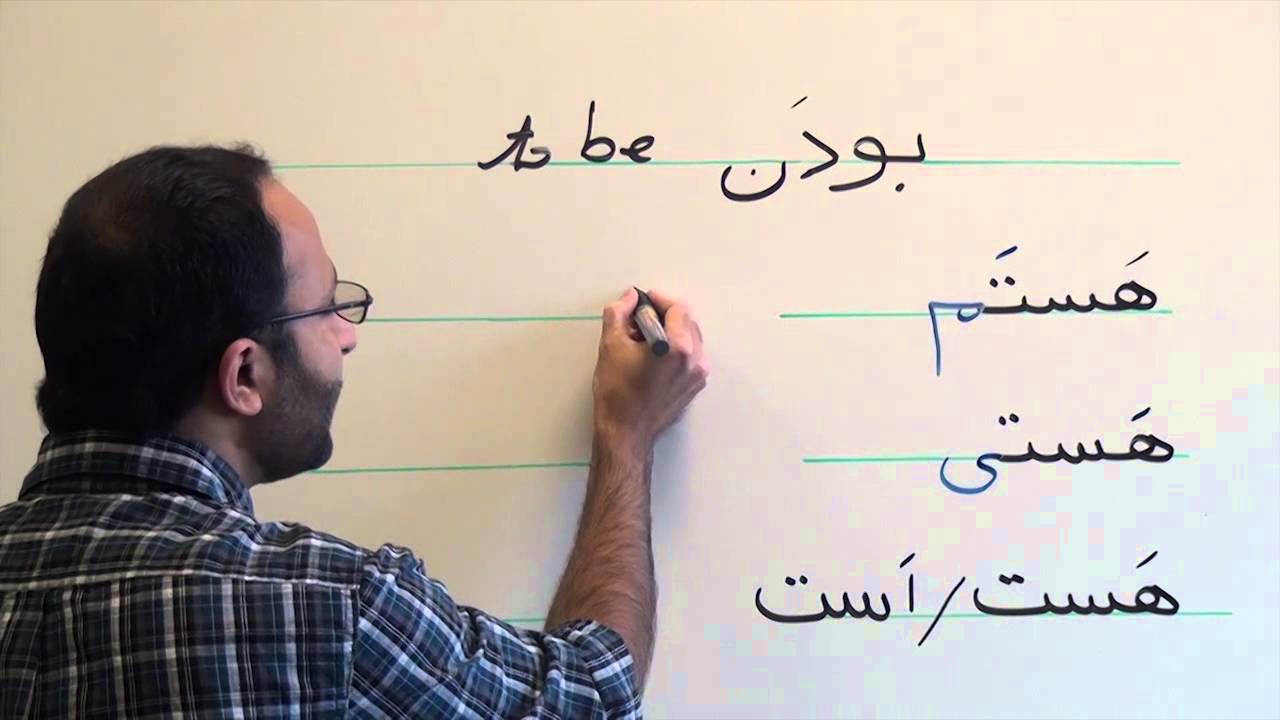 بودَن to be
هَستَم
هَستی
هَست/اَست